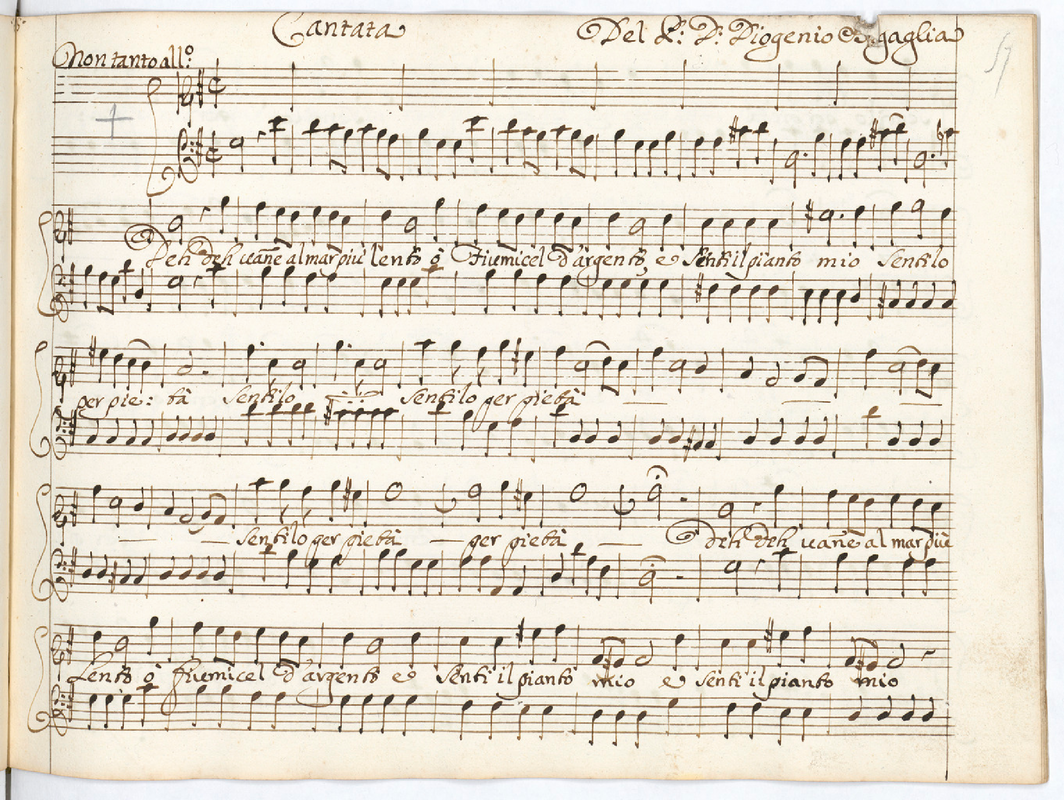 Cantata Del P: D: Diogenio Bigaglia
Non tanto all.º
57
Deh deh vane al mar più lento ò Fiumicel d'argento, e senti il pianto mio Sentilo
per pie: tà Sentilo Sentilo per pietà
Sentilo per pietà per pietà deh deh vane al mar più
Lento ò fiumicel d'argento e senti il pianto mio e senti il pianto mio